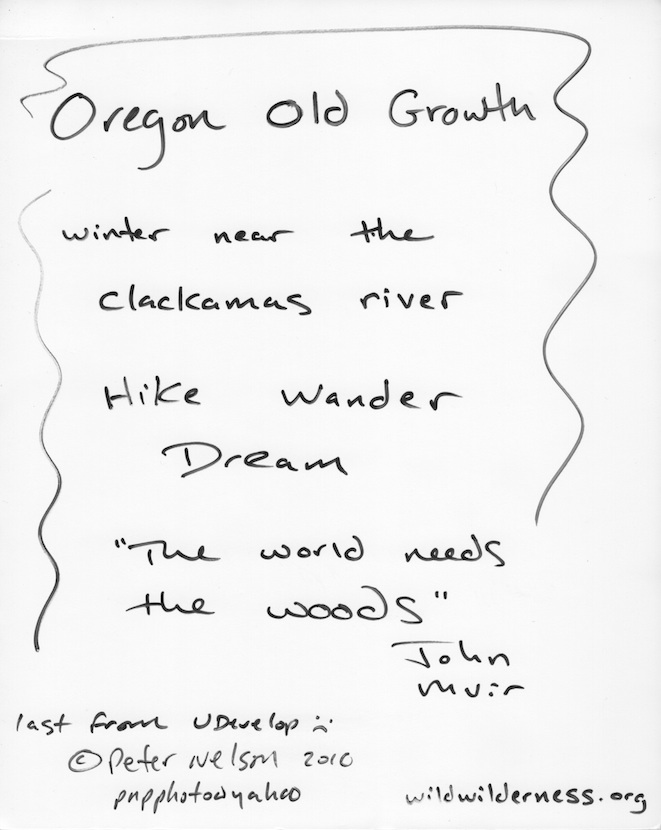 Oregon Old Growth
winter near the
clackamas river
Hike Wander
Dream
"The world needs
the woods"
John
Muir
last from UDevelop :(
© Peter Nelson 2010
pnpphoto@yahoo
wildwilderness.org